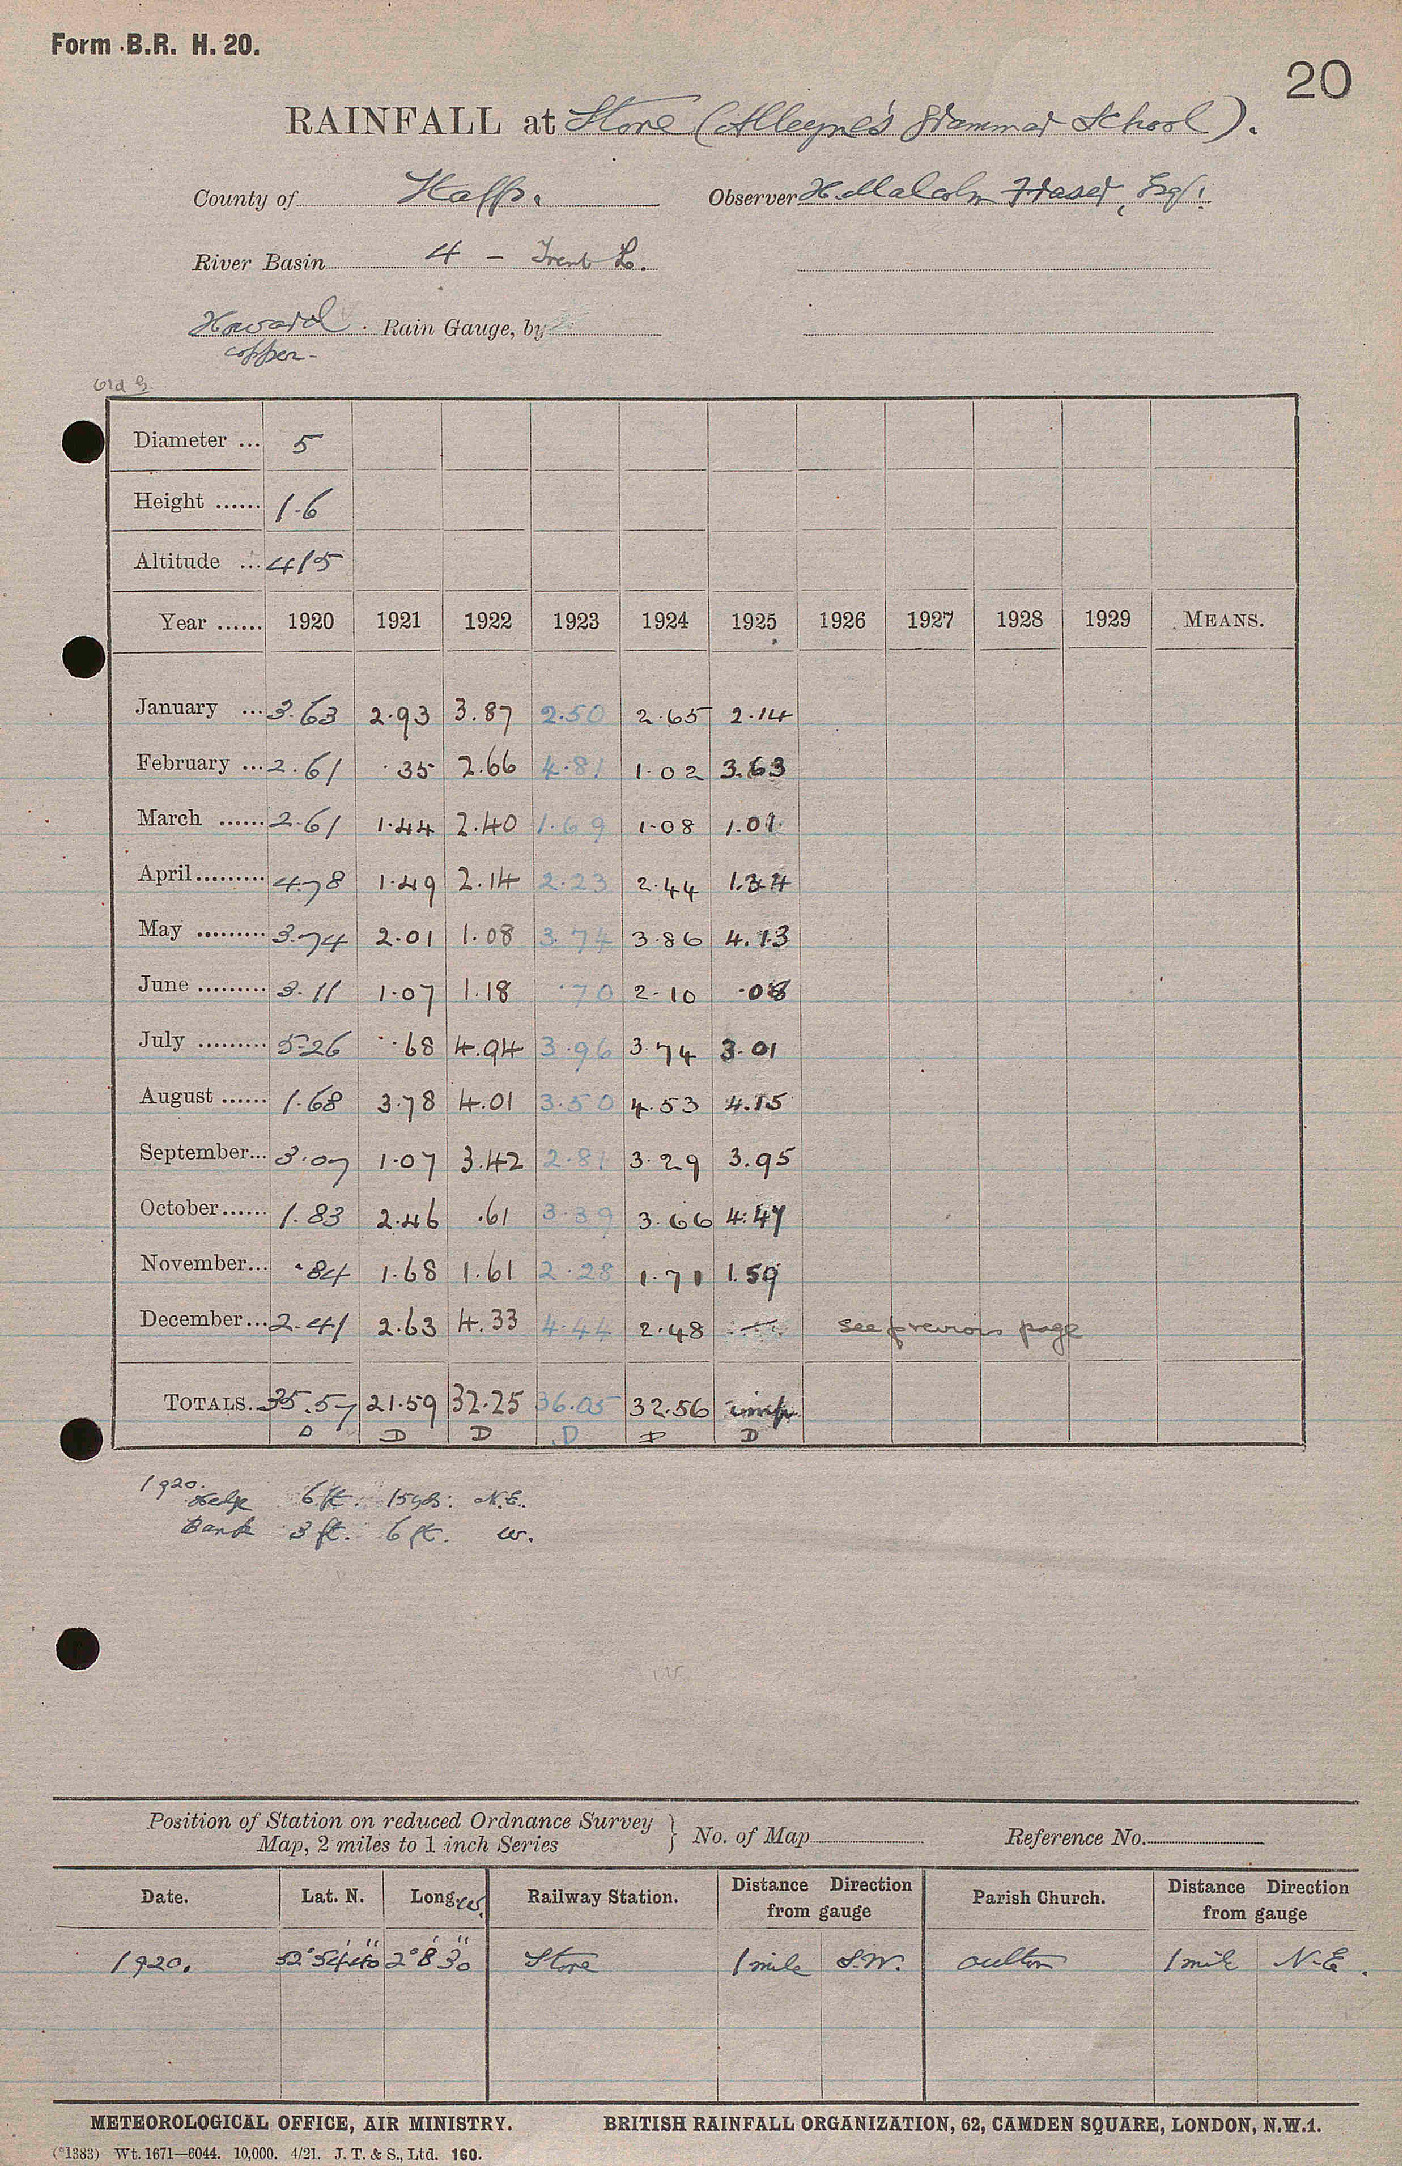 Form B.R. H. 20.
20
RAINFALL at Stone (Alleyne's Grammar School).
County of Staffs. Observer H. Malcolm Fraser, Esq.
River Basin 4 - Trent L.
Howard Rain Gauge, by
copper -
Old G
Diameter ... 5
Height ...... 1.6
Altitude ... 415
Year ...... 1920 1921 1922 1923 1924 1925 1926 1927 1928 1929 MEANS.
January ... 3.63 2.93 3.87 2.50 2.65 2.14
February ... 2.61 .35 2.66 4.81 1.02 3.63
March ...... 2.61 1.44 2.40 1.69 1.08 1.01
April ......... 4.78 1.49 2.14 2.23 2.44
May ......... 3.74 2.01 1.08 3.74 3.86 4.13
June ......... 3.11 1.07 1.18 .70 2.10 .08
July ......... 5.26 .68 4.94 3.96 3.74 3.01
August ...... 1.68 3.78 4.01 3.50 4.53 4.15
September... 3.07 1.07 3.42 2.81 3.29 3.95
October...... 1.83 2.46 .61 3.39 3.66 4.47
November... .84 1.68 1.61 2.28 1.71 1.59
December... 2.41 2.63 4.33 4.44 2.48 see previous page
TOTALS. 35.57 21.59 32.25 36.05 32.56
D D D D D D
1920.
Hedge 6 ft. 15 yds. N.E.
Bank 3 ft. 6 ft. W.
Position of Station on reduced Ordnance Survey
Map, 2 miles to 1 inch Series } No. of Map Reference No.
Date. Lat. N. Long W. Railway Station. Distance Direction from gauge Parish Church. Distance Direction from gauge
1920. 52° 54' 40" 2° 8' 30" Stone 1 mile S.W. Oulton 1 mile N.E.
METEOROLOGICAL OFFICE, AIR MINISTRY. BRITISH RAINFALL ORGANIZATION, 62, CAMDEN SQUARE, LONDON, N.W.1.
(*1383) Wt. 1671—6044. 10,000. 4/21. J. T. & S., Ltd. 160.